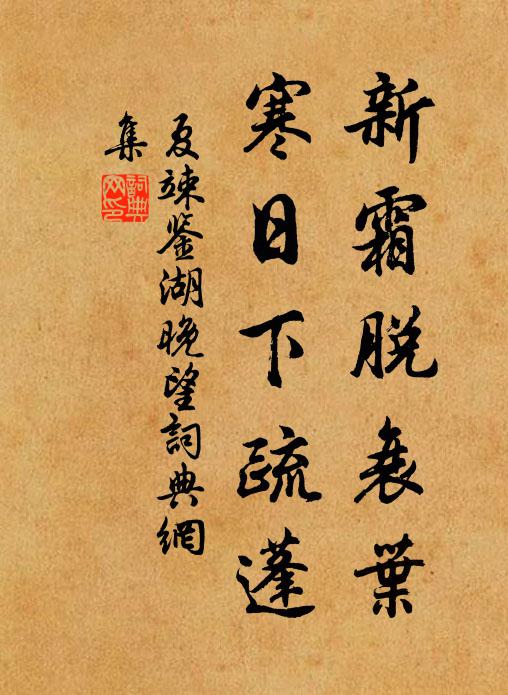 新霜脱衰葉
寒日下疏蓬
夏竦鉴湖晚望詞典網
集
詞典
网印